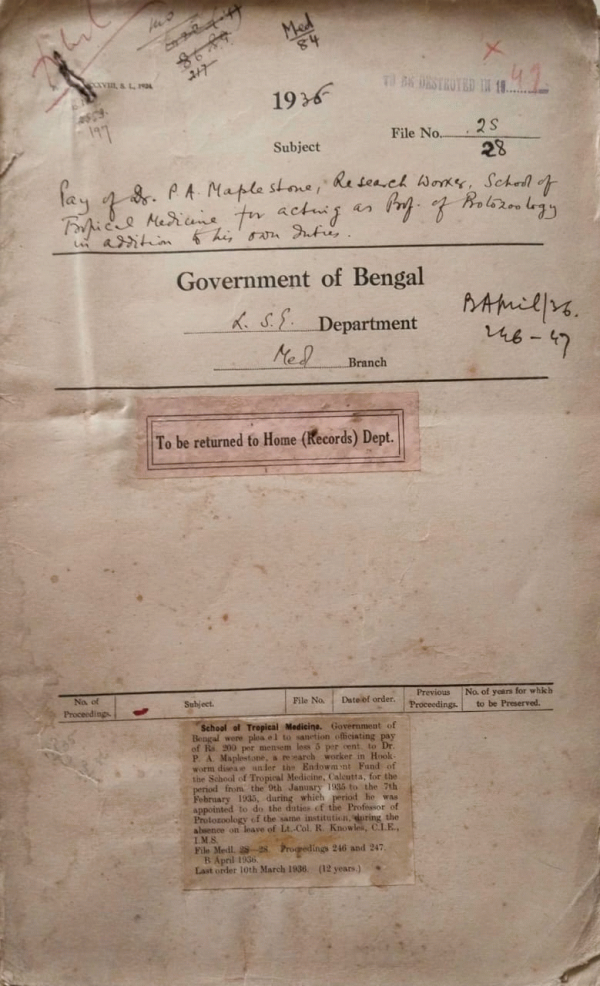 Med
84
TO BE DESTROYED IN 19 42.
1936
Subject
File No. 2S
28
197
Pay of Dr. P. A. Maplestone, Research Worker, School of
Tropical Medicine for acting as Prof. of Protozoology
in addition to his own duties.
Government of Bengal
L. S. G. Department
Med Branch
B April/36.
246-47
To be returned to Home (Records) Dept.
No. of Proceedings. Subject. File No. Date of order. Previous Proceedings. No. of years for which to be Preserved.
School of Tropical Medicine. Government of
Bengal were pleased to sanction officiating pay
of Rs. 200 per mensem less 5 per cent. to Dr.
P. A. Maplestone, a research worker in Hook-
worm disease under the Endowment Fund of
the School of Tropical Medicine, Calcutta, for the
period from the 9th January 1935 to the 7th
February 1935, during which period he was
appointed to do the duties of the Professor of
Protozoology of the same institution, during the
absence on leave of Lt.-Col. R. Knowles, C.I.E.,
I.M.S.
File Medl. 28—28. Proceedings 246 and 247.
B April 1936.
Last order 10th March 1936. (12 years.)